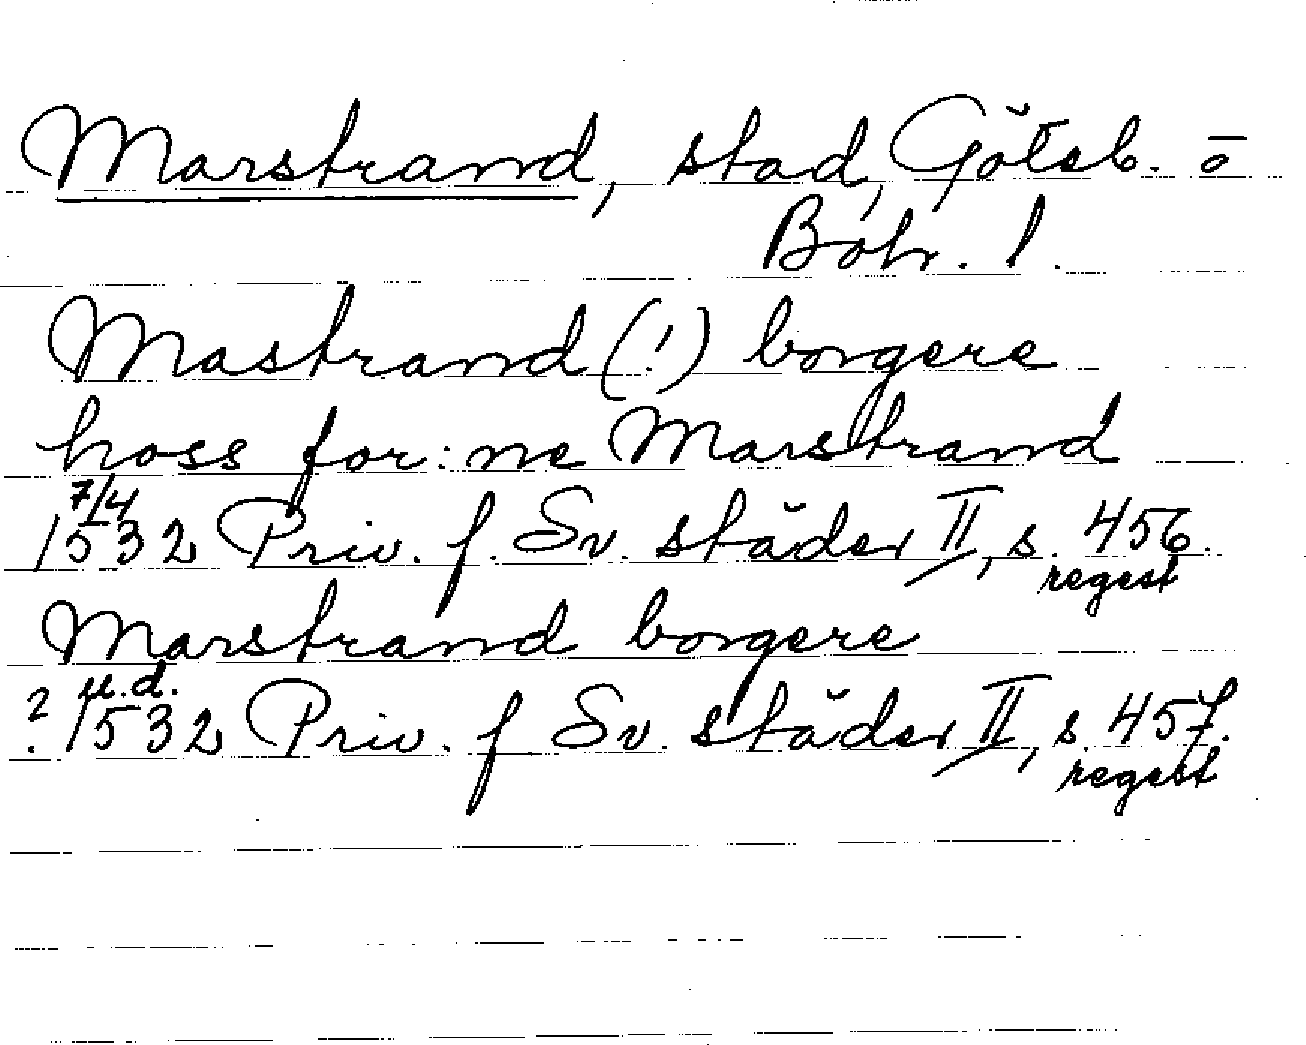 Marstrand, stad, Göteb. o
Boh. l.
Mastrand (!) borgere
hoss for:ne Marstrand
7/4
1532 Priv. f. Sv. städer II, s. 456.
regest
Marstrand borgere
u.d.
? 1532 Priv. f Sv. städer II, s. 457.
regest